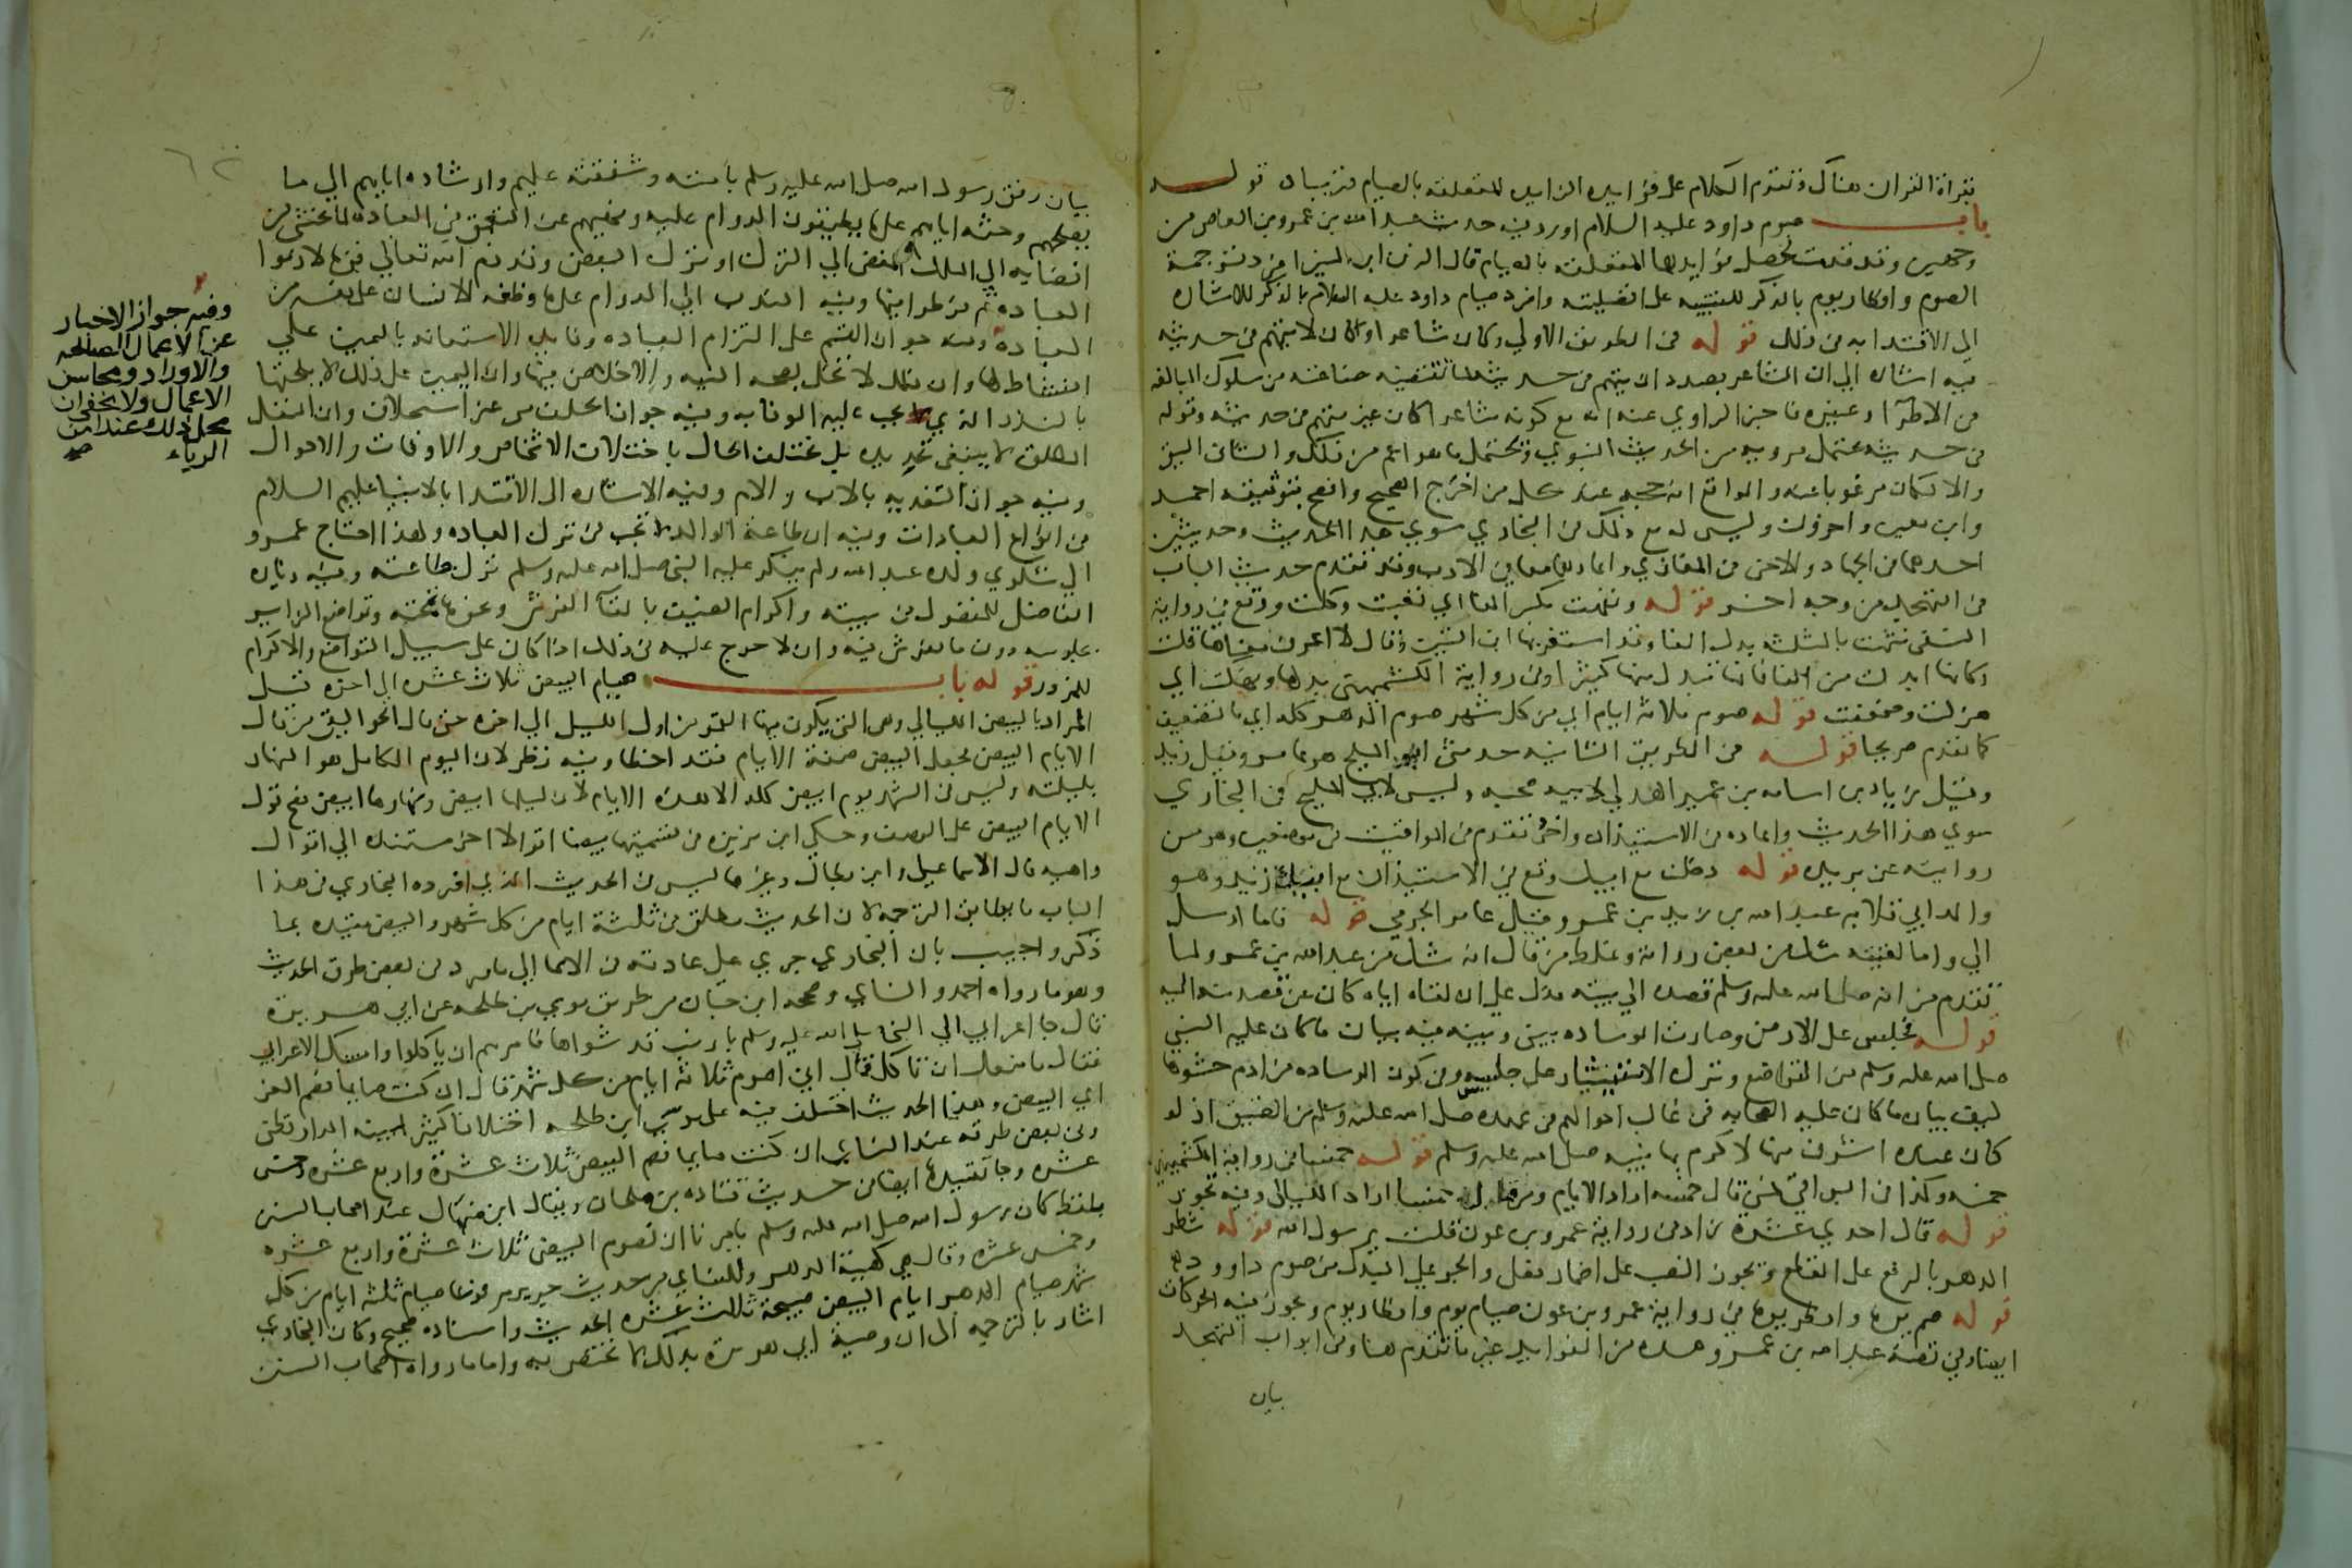 بقراة القران هناك وتقدم الكلام على فوايده الزايده المتعلقه بالصيام قريبا قوله
باب صوم داود عليه السلام اورد فيه حديث عبد الله بن عمرو بن العاص من
وجهين وقد قدمت محصل فوايدهما المتعلقه بالصيام قال الزين ابن المنير افرد ترجمة
الصوم وافطار يوم بالذكر للتنبيه على افضليته وافرد صيام داود عليه السلام بالذكر للاشاره
الى الاقتدا به في ذلك قوله في الطريق الاولي وكان شاعرا وكان لا يتهم في حديثه
فيه اشاره الي ان الشاعر بصدد ان يتهم في حديثه لما تقتضيه صناعته من سلوك المبالغه
في الاطرا وغيره فاخبر الراوي عنه انه مع كونه شاعرا كان غير متهم في حديثه وقوله
في حديثه يحتمل مرويه من الحديث النبوي ويحتمل ما هو اعم من ذلك والثاني اليق
والا لكان مرغوبا عنه والواقع انه حجه عند كل من اخرج الصحيح وافصح بتوثيقه احمد
وابن معين واخرون وليس له مع ذلك في البخاري سوي هذا الحديث وحديثين
احدهما في الجهاد والاخر في المغازي واعادهما معا في الادب وقد تقدم حديث الباب
في التهجد من وجه اخر قوله ونفهت بكسر الفا اي تعبت وكلت ووقع في رواية
النسفي نثهت بالمثلثه بدل الفا وقد استغربها ابن التين وقال لا اعرف معناها قلت
وكانها ابدلت من الفا فانها تبدل منها كثيرا وفي رواية الكشميهني بدلها ونهكت اي
هزلت وضعفت قوله صوم ثلاثة ايام اي من كل شهر صوم الدهر كله اي بالتضعيف
كما تقدم صريحا قوله في الطريق الثانيه حدثني ابو المليح هو عامر وقيل زيد
وقيل زياد بن اسامه بن عمير الهذلي لابيه صحبه وليس لابي المليح في البخاري
سوي هذا الحديث واعاده في الاستيذان واخر تقدم في المواقيت في موضعين وهو من
روايته عن بريده قوله دخلت مع ابيك وقع في الاستيذان مع ابيك زيد وهو
والد ابي قلابه عبد الله بن زيد بن عمرو وقيل عامر الجرمي قوله فاما ارسل
الي واما لقيته شك من بعض رواته وغلط من قال انه شك من عبد الله بن عمرو لما
تقدم من انه صلى الله عليه وسلم قصده الي بيته فدل علي ان لقاه اياه كان عن قصد منه اليه
قوله فجلس على الارض وصارت الوساده بيني وبينه فيه بيان ما كان عليه النبي
صلى الله عليه وسلم من التواضع وترك الاستيثار على جليسه وفي كون الوساده من ادم حشوها
ليف بيان ما كان عليه الصحابه في غالب احوالهم في عهده صلى الله عليه وسلم من الضيق اذ لو
كان عنده اشرف منها لاكرم بها نبيه صلى الله عليه وسلم قوله خمسا في رواية الكشميهني
خمسه وكذا في البواقي فمن قال خمسه اراد الايام ومن قال خمسا اراد الليالي وفيه تجوز
قوله قال احدي عشرة زاد في رواية عمرو بن عون قلت يرسول الله قوله شطر
الدهر بالرفع على القطع ويجوز النصب على اضمار فعل والجر علي البدل من صوم داوود
قوله صم يوما وافطر يوما في رواية عمرو بن عون صيام يوم وافطار يوم ويجوز فيه الحركات
ايضا وفي قصة عبد الله بن عمرو هذه من الفوايد غير ما تقدم هنا وفي ابواب التهجد
بيان
بيان رفق رسول الله صلى الله عليه وسلم بامته وشفقته عليهم وارشاده اياهم الي ما
يصلحهم وحثه اياهم على ما يطيقون الدوام عليه ونهيهم عن التعمق في العباده لما يخشى من
افضايه الي الملل المفضي الي الترك او ترك البعض وقد ذم الله تعالي قوما لازموا
العباده ثم فرطوا فيها وفيه الندب الي الدوام على ما وظفه الانسان على نفسه من
العبادة وفيه جواز القسم على التزام العباده وفايدته الاستعانه باليمين علي
النشاط لها وان ذلك لا يخل بصحه النيه والاخلاص فيها وان اليمين على ذلك لا يلحقها
بالنذر الذي يجب عليه الوفا به وفيه جواز الحلف من غير استحلاف وان النفل
المطلق لا ينبغي تحديده بل يختلف الحال باختلاف الاشخاص والاوقات والاحوال
وفيه جواز التفديه بالاب والام وفيه الاشاره الى الاقتدا بالانبيا عليهم السلام
في انواع العبادات وفيه ان طاعة الوالد لا تجب في ترك العباده ولهذا احتاج عمرو
الي شكوي ولده عبد الله ولم ينكر عليه النبي صلى الله عليه وسلم ترك طاعته وفيه زياره
الفاضل للمفضول في بيته واكرام الضيف بالقا الفرش ونحوها تحته وتواضع الزاير
بجلوسه دون ما يفرش فيه وان لا حرج عليه في ذلك اذا كان على سبيل التواضع والاكرام
للمزور قوله باب صيام البيض ثلاث عشره الي اخره قيل
المراد بالبيض الليالي وهي التي يكون فيها القمر من اول الليل الي اخره حتى قال الجواليقي من قال
الايام البيض فجعل البيض صفة الايام فقد اخطا وفيه نظر لان اليوم الكامل هو النهار
بليلته وليس في الشهر يوم ابيض كله الا هذه الايام لان ليلها ابيض ونهارها ابيض فصح قول
الايام البيض على الوصف وحكي ابن بزيزه في تسميتها بيضا اقوالا اخر مستنده الي اقوال
واهيه قال الاسماعيلي وابن بطال وغيرهما ليس في الحديث الذي اورده البخاري في هذا
الباب ما يطابق الترجمه لان الحديث مطلق في ثلثة ايام من كل شهر والبيض مقيده بما
ذكر واجيب بان البخاري جري علي عادته في الايما الي ما ورد في بعض طرق الحديث
وهو ما رواه احمد والنسايي وصححه ابن حبان من طريق موسي بن طلحه عن ابي هريرة
قال جا اعرابي الي النبي صلى الله عليه وسلم بارنب قد شواها فامرهم ان ياكلوا وامسك الاعرابي
فقال ما منعك ان تاكل قال اني اصوم ثلاثة ايام من كل شهر قال ان كنت صايما فصم الغر
اي البيض وهذا الحديث اختلف فيه على موسي ابن طلحه اختلافا كثيرا بينه الدارقطني
وفي بعض طرقه عند النسايي ان كنت صايما فصم البيض ثلاث عشرة واربع عشره وخمس
عشره وجا تقييدها ايضا في حديث قتاده بن ملحان ويقال ابن منهال عند اصحاب السنن
بلفظ كان رسول الله صلى الله عليه وسلم يامرنا ان نصوم البيض ثلاث عشرة واربع عشره
وخمس عشره وقال هي كهيئة الدهر وللنسايي من حديث جرير مرفوعا صيام ثلثة ايام من كل
شهر صيام الدهر ايام البيض صبيحة ثلث عشره الحديث واسناده صحيح وكان البخاري
اشار بالترجمه الي ان وصية ابي هريرة بذلك لا تختص به واما ما رواه اصحاب السنن
وفيه جواز الاخبار
عن الاعمال الصالحه
والاوراد ومحاسن
الاعمال ولا يخفى ان
محل ذلك عند امن
الرياء صح